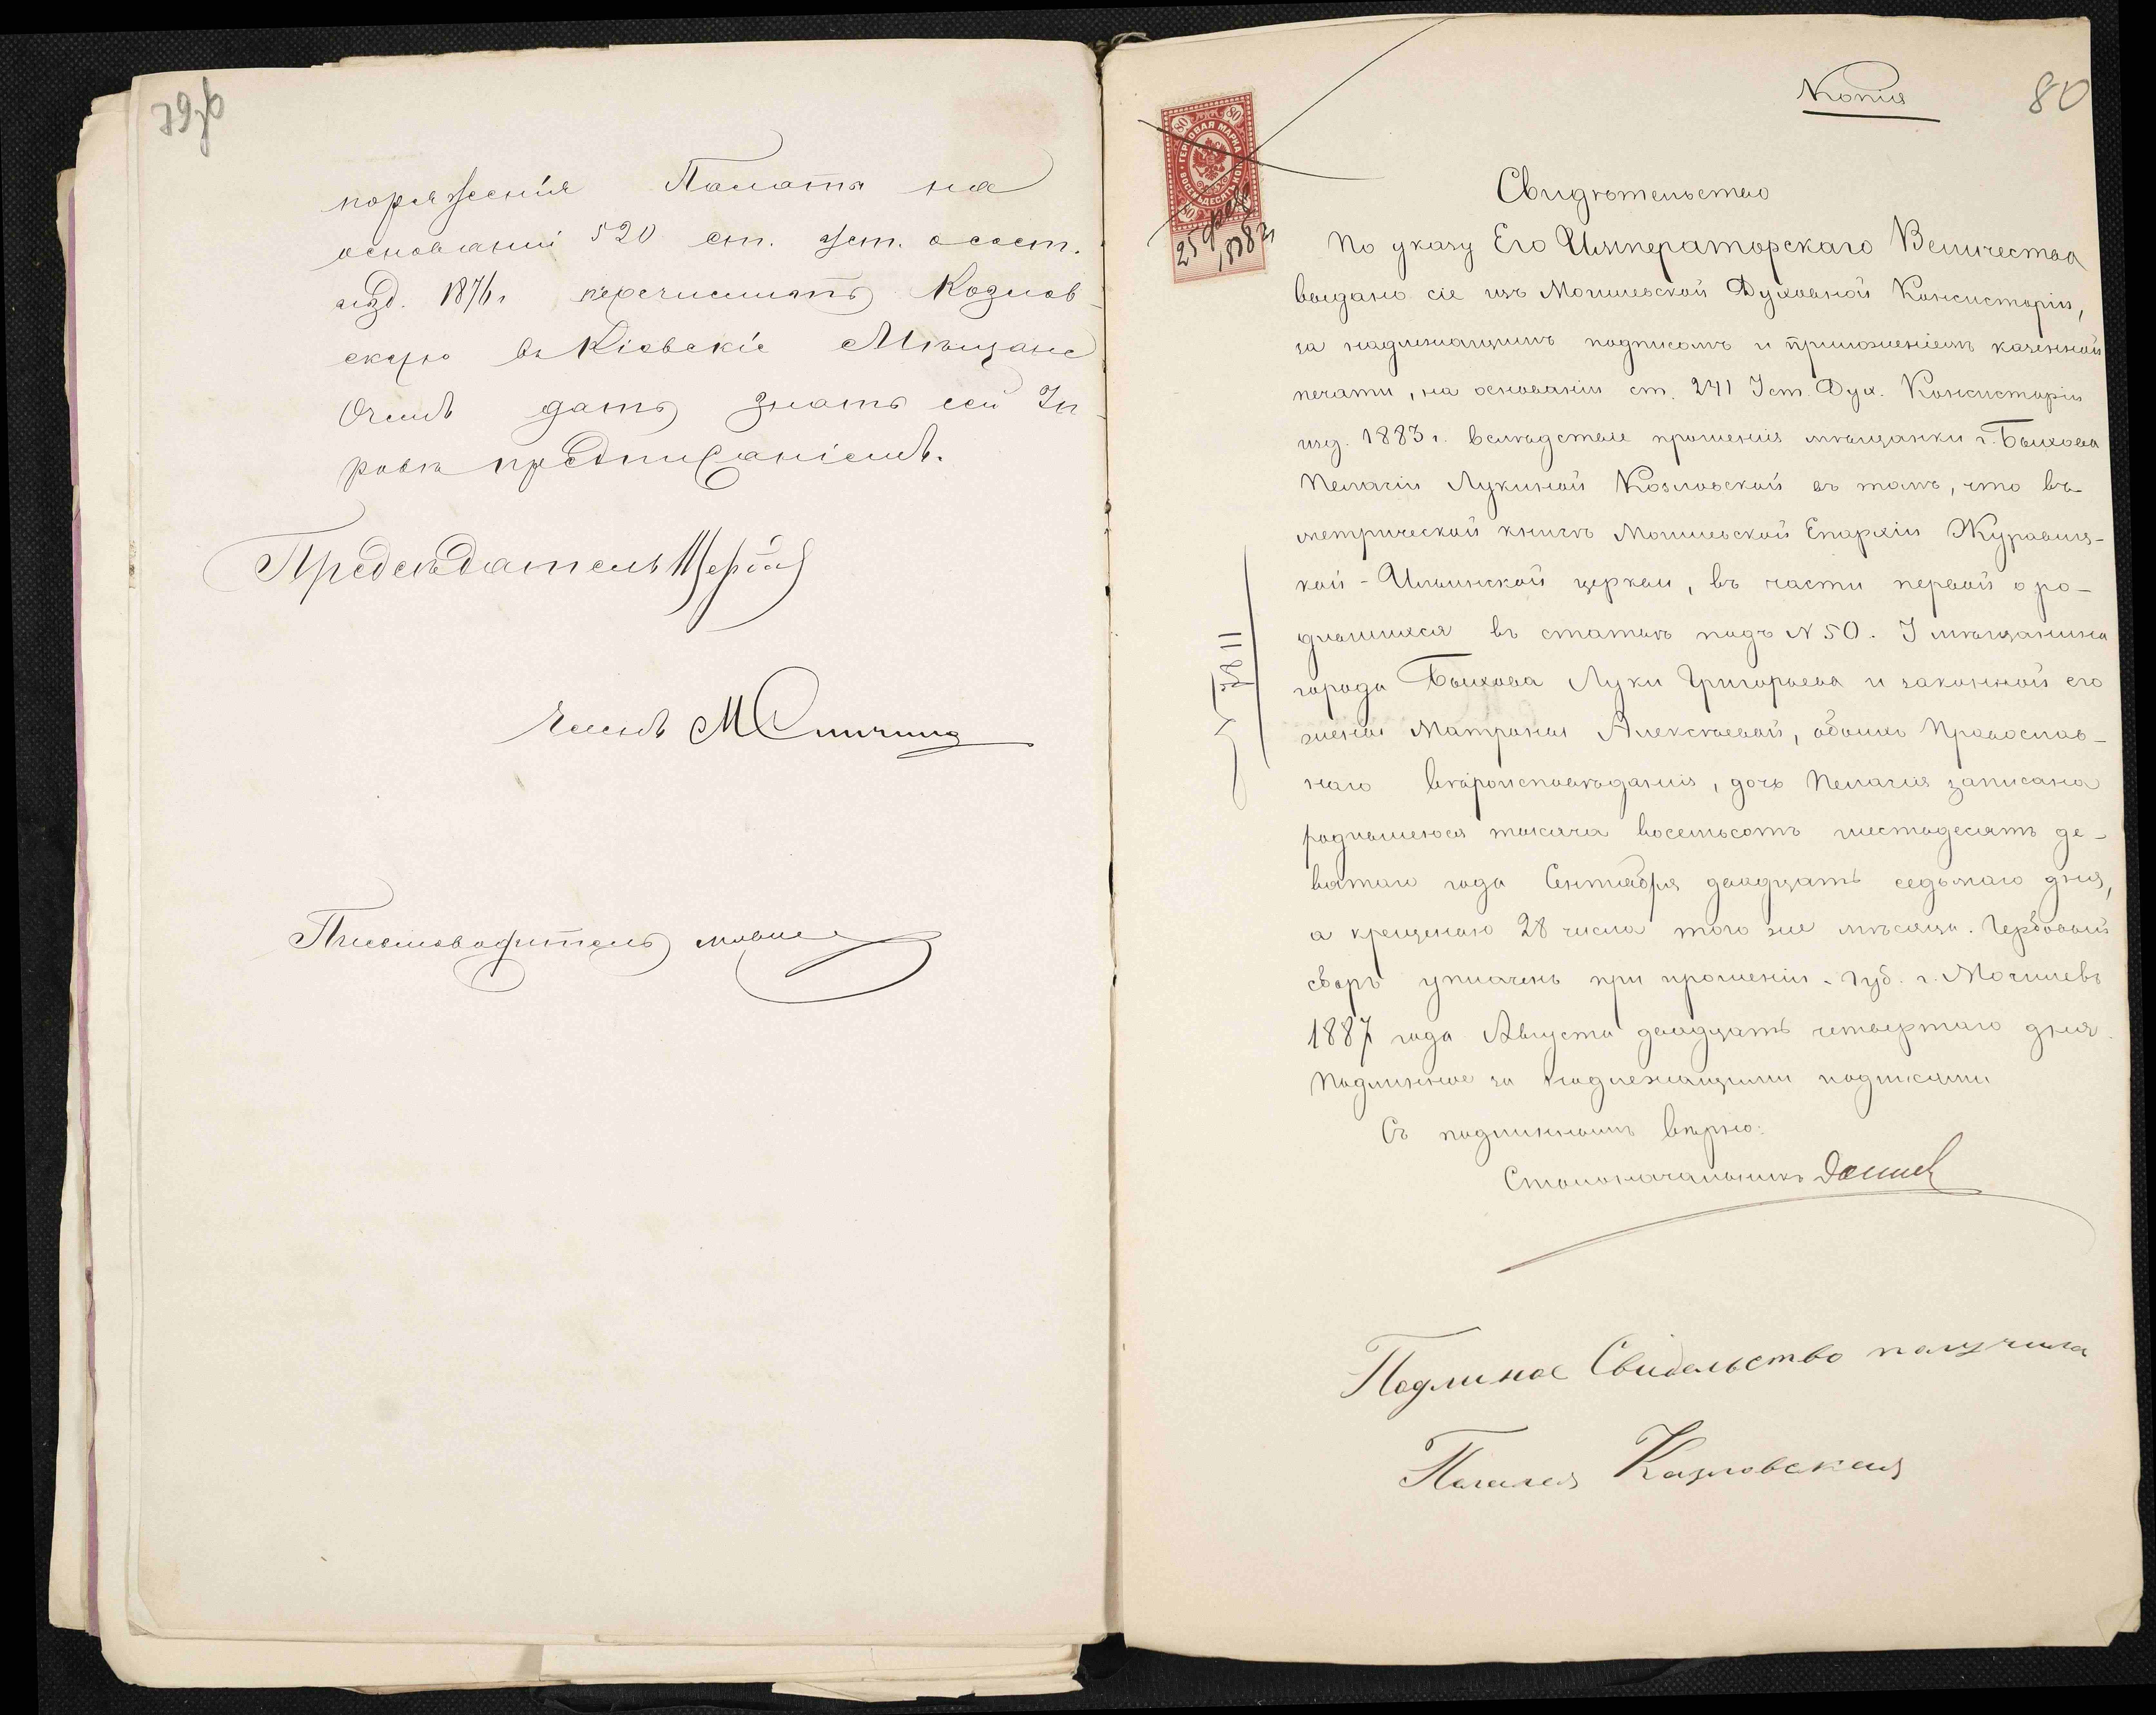 79об
поряженія Палаты на
основаніи 520 ст. Уст. о сост.
изд. 1876 г перечислить Козлов-
скую въ Кіевскіе Мѣщане
О чемъ дать знать сей Уп-
равѣ предписаніемъ.
Предсѣдатель
Членъ М
Письмоводитель
Копія
80
80 80
ГЕРБОВАЯ МАРКА
ВОСЕМЬДЕСЯТЪ КОП.
25 февр
1888 г
Свидѣтельство
По указу Его Императорскаго Величества
выдано сіе изъ Могилевской Духовной Консисторіи,
за надлежащимъ подписомъ и приложеніемъ казенной
печати, на основаніи ст. 241 Уст. Дух. Консисторіи
изд. 1883 г. вслѣдствіе прошенія мѣщанки г. Быхова
Пелагіи Лукиной Козловской въ томъ, что въ
метрической книгѣ Могилевской Епархіи Журавиц-
кой-Ильинской церкви, въ части первой о ро-
дившихся въ статьѣ подъ N 50. У мѣщанина
города Быхова Луки Григорьева и законной его
жены Матроны Алексѣевой, обоихъ Православ-
наго вѣроисповѣданія, дочь Пелагія записана
родившеюся тысяча восемьсотъ шестьдесятъ де-
вятаго года Сентября двадцать седьмаго дня,
а крещеною 28 числа того же мѣсяца. Гербовый
сборъ уплаченъ при прошеніи. Губ. г. Могилевъ
1887 года Августа двадцать четвертаго дня.
Подлинное за надлежащими подписями
Съ подлиннымъ вѣрно:
Столоначальникъ
Подлиное Свидельство получила
Пелагея Казловская